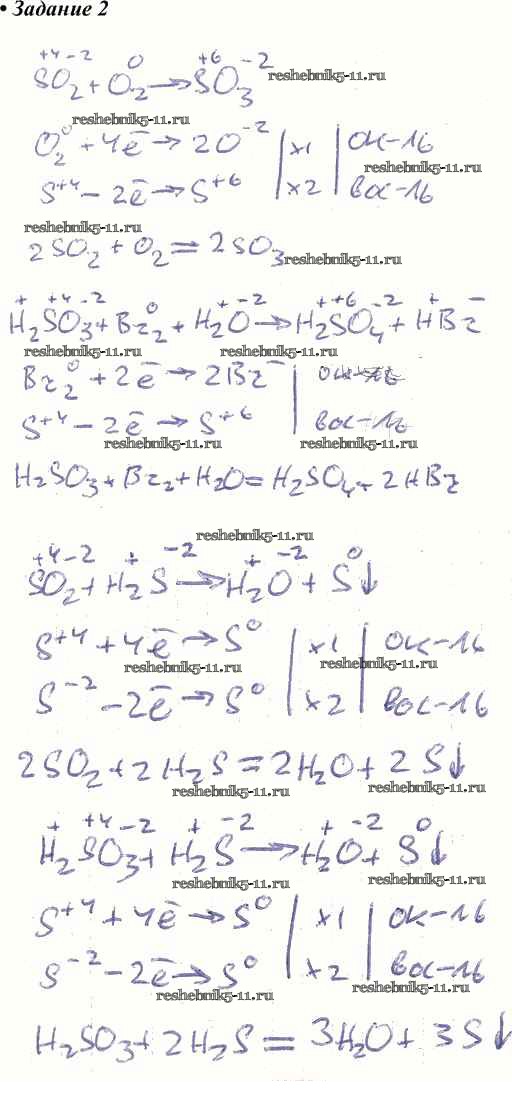 • Задание 2
+4 -2 0 +6 -2
SO2 + O2 → SO3 reshebnik5-11.ru
reshebnik5-11.ru
O2^0 + 4ē → 2O^-2 | x1 | ок-1б
reshebnik5-11.ru
S^+4 - 2ē → S^+6 | x2 | вос-1б
reshebnik5-11.ru
2SO2 + O2 = 2SO3 reshebnik5-11.ru
+ +4 -2 0 + -2 + +6 -2 + -
H2SO3 + Br2 + H2O → H2SO4 + HBr
reshebnik5-11.ru reshebnik5-11.ru
Br2^0 + 2ē → 2Br^- |
S^+4 - 2ē → S^+6 | вос-1б
reshebnik5-11.ru reshebnik5-11.ru
H2SO3 + Br2 + H2O = H2SO4 + 2HBr
reshebnik5-11.ru
+4 -2 + -2 + -2 0
SO2 + H2S → H2O + S↓
S^+4 + 4ē → S^0 | x1 | ок-1б
reshebnik5-11.ru reshebnik5-11.ru
S^-2 - 2ē → S^0 | x2 | вос-1б
2SO2 + 2H2S = 2H2O + 2S↓
reshebnik5-11.ru reshebnik5-11.ru
+ +4 -2 + -2 + -2 0
H2SO3 + H2S → H2O + S↓
reshebnik5-11.ru reshebnik5-11.ru
S^+4 + 4ē → S^0 | x1 | ок-1б
S^-2 - 2ē → S^0 | x2 | вос-1б
reshebnik5-11.ru reshebnik5-11.ru
H2SO3 + 2H2S = 3H2O + 3S↓